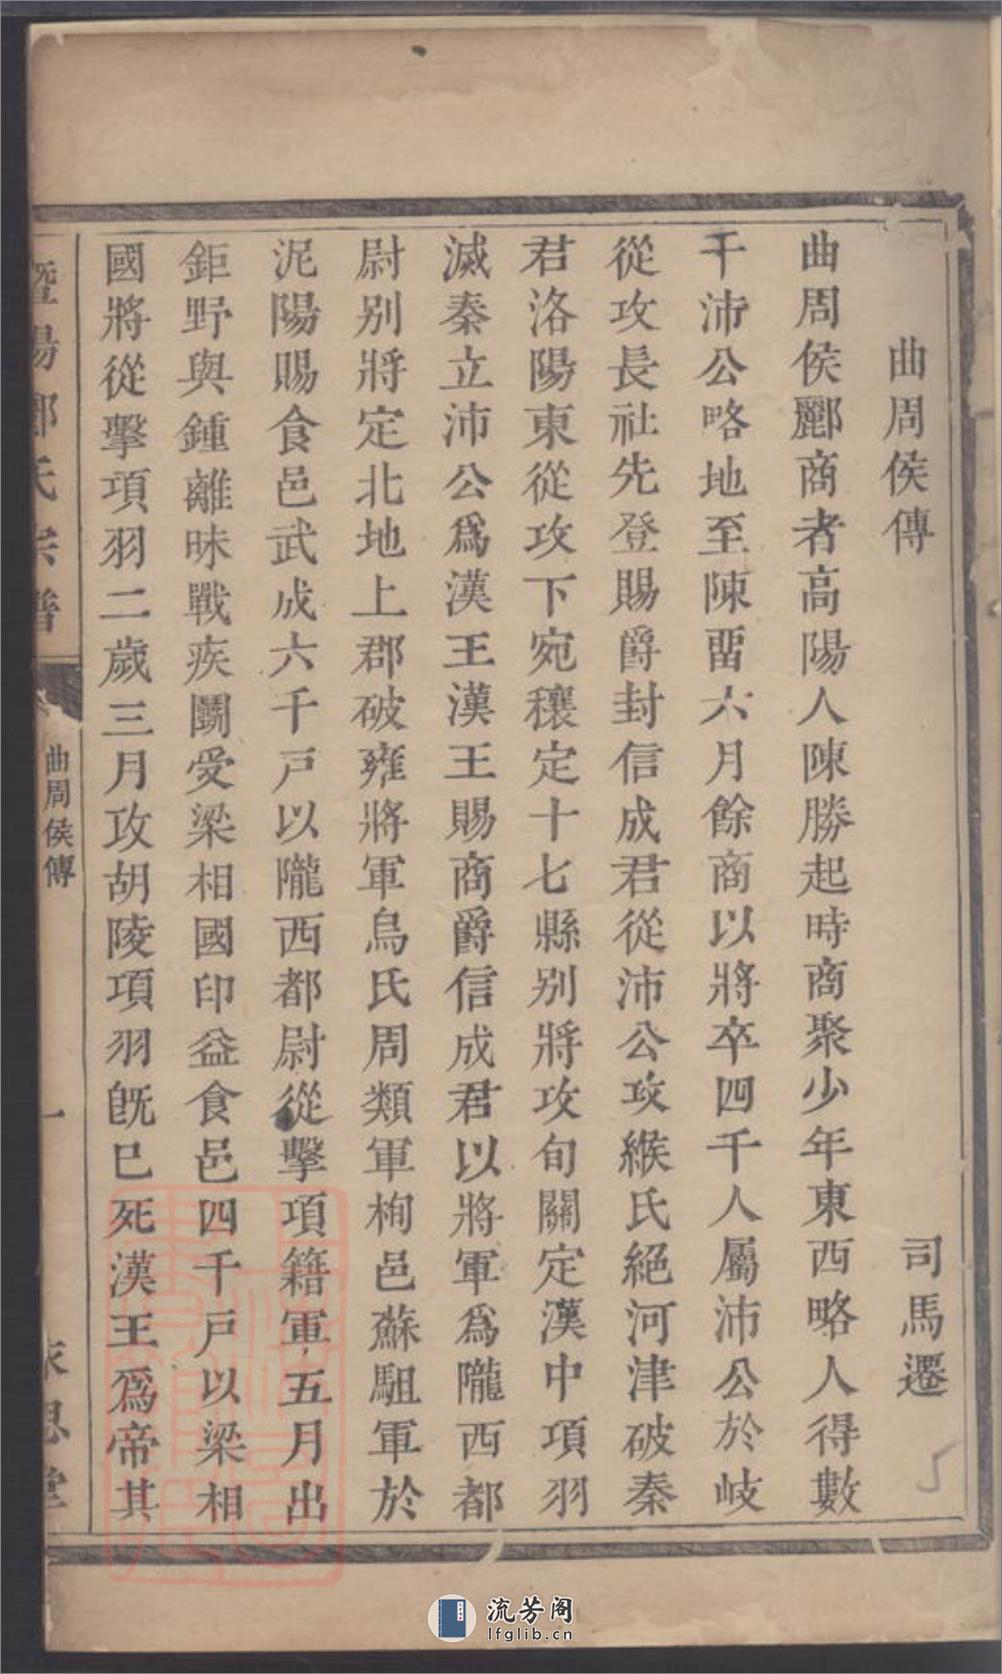 曲周侯傳 司馬遷
曲周侯酈商者高陽人陳勝起時商聚少年東西略人得數
千沛公略地至陳畱六月餘商以將卒四千人屬沛公於岐
從攻長社先登賜爵封信成君從沛公攻緱氏絕河津破秦
君洛陽東從攻下宛穰定十七縣別將攻旬關定漢中項羽
滅秦立沛公爲漢王漢王賜商爵信成君以將軍爲隴西都
尉別將定北地上郡破雍將軍烏氏周類軍栒邑蘇駔軍於
泥陽賜食邑武成六千戸以隴西都尉從擊項籍軍五月出
鉅野與鍾離昧戰疾鬭受梁相國印益食邑四千戸以梁相
國將從擊項羽二歲三月攻胡陵項羽旣已死漢王爲帝其
暨陽酈氏宗譜
曲周侯傳
一
永思堂
流芳阁
lfglib.cn